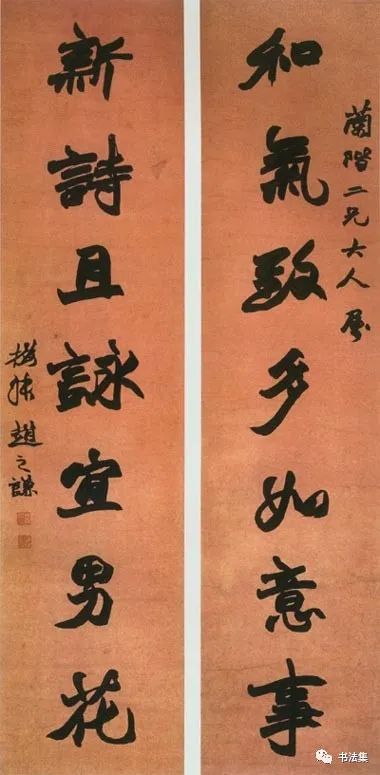 蘭階二兄大人属
和氣致多如意事
新詩且詠宜男花
撝叔趙之謙
书法集